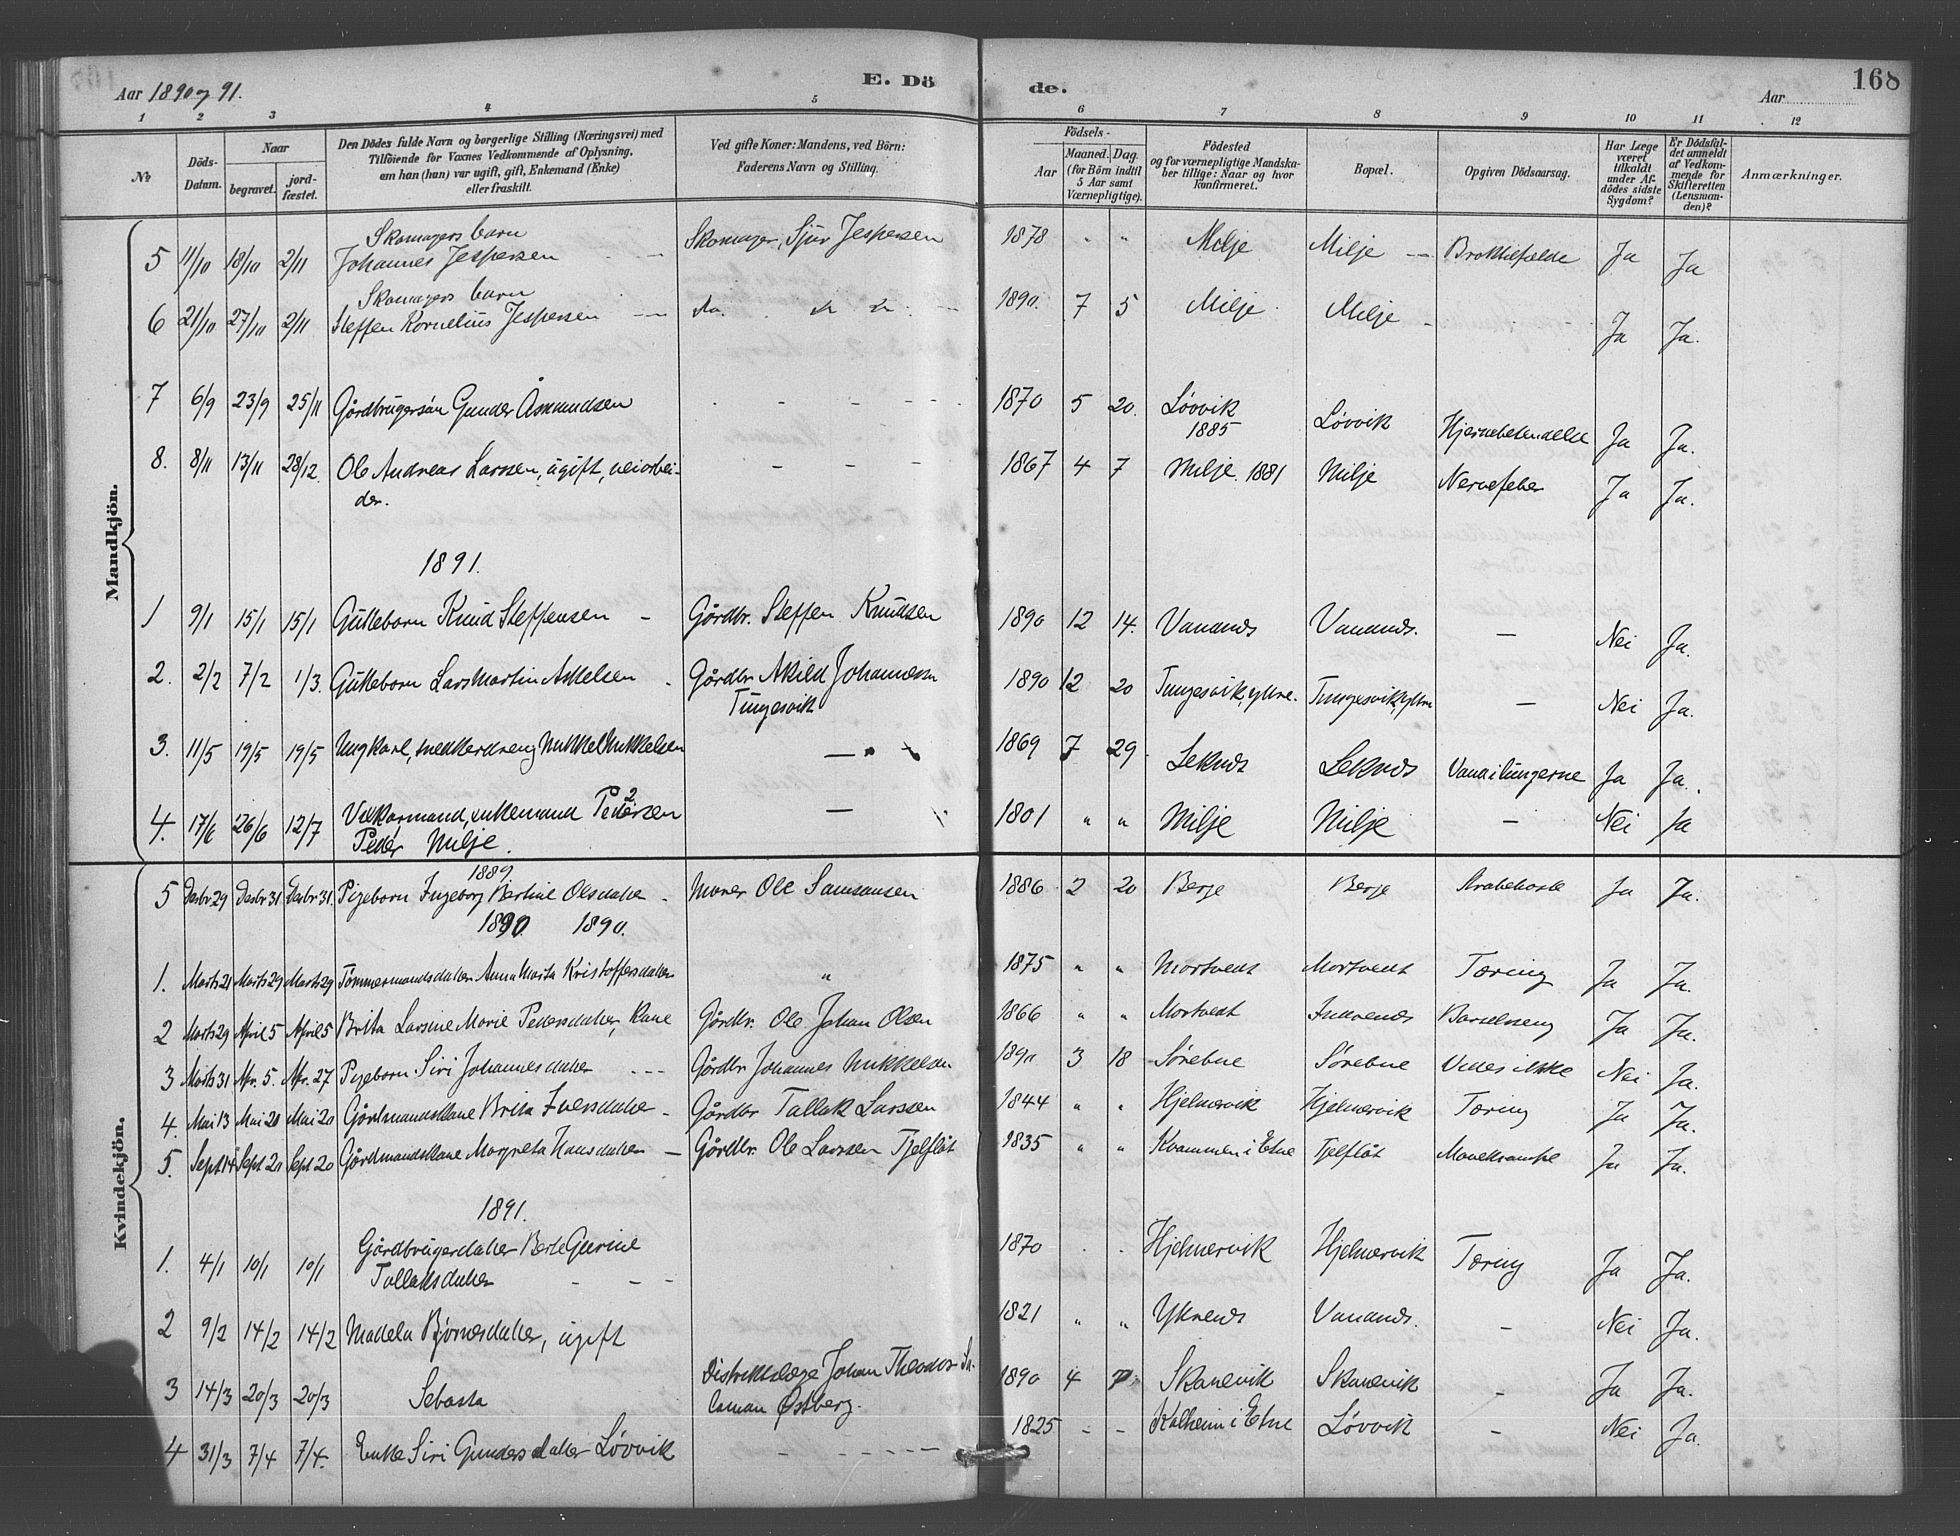 Aar 1890 og 91.
E. Dö
de.
168
Aar
1 2 3 4 5 6 7 8 9 10 11 12
№
Döds-Datum.
Naar
begravet.
jord-fæstet.
Den Dödes fulde Navn og borgerlige Stilling (Næringsvei) med
Tilföiende for Voxnes Vedkommende af Oplysning,
om han (hun) var ugift, gift, Enkemand (Enke)
eller fraskilt.
Ved gifte Koner: Mandens, ved Börn:
Faderens Navn og Stilling.
Födsels-
Aar
Maaned. Dag.
(for Börn indtil
5 Aar samt
Værnepligtige).
Födested
og for værnepligtige Mandska-
ber tillige: Naar og hvor
konfirmeret.
Bopæl.
Opgiven Dödsaarsag.
Har Læge
været
tilkaldt
under Af-
dödes sidste
Sygdom?
Er Dödsfal-
det anmeldt
af Vedkom-
mende for
Skifteretten
(Lensman-
den)?
Anmærkninger.
Mandkjön.
5 11/10 18/10 2/11 Skomagers barn Johannes Jespersen - - Skomager, Sjur Jespersen 1878 " " Milje Milje - - Ja Ja
6 21/10 27/10 2/11 Skomagers barn Steffen Kornelius Jespersen - - 1890. 7 5 Milje Milje - Ja Ja.
7 6/9 23/9 25/11 Gårdbrugersön Gunder Åsmundsen - - - - 1870 5 20. Løvvik 1885 Løvvik Hjernebetendelse Ja Ja.
8. 8/11 13/11 28/12. Ole Andreas Larssen, ugift, veiarbei-
der. - - - 1867 4 7 Milje. 1881 Milje Nervefeber Ja Ja.
1891.
1 9/1 15/1 15/1 Gutteborn Knud Steffensen - Gårdbr. Steffen Knudsen 1890 12 14. Vanands Vanands. - Nei Ja.
2. 2/2 7/2 1/3. Gutteborn Lars Martin Askelsen - Gårdbr. Johannesen
Tungesvik 1890 12 20 Tungesvik, ytre. Tungesvik, ytre - Nei Ja.
3. 11/5 19/5 19/5 Ungkarl, snedkerdreng Mikkel Mikkelsen - 1869 7 29 - Seknes Seknes Vand i lungerne Ja Ja.
4. 17/6 26/6 12/7 enkemand Pedersen
Peder Milje. - 1801 " " Milje Milje - Nei Ja
Kvindekjön.
1889
5 Desbr 29 Desbr 31 Desbr 31. Pigeborn Ingeborg Bertine Olsdatter - Murer Ole Samsonsen 1886 2 20 Berge Berge Strubehoste Ja Ja.
1890. 1890.
1. Marts 21 Marts 29 Marts 29 Tømmermandsdatter Anna Marta Kristoffersdatter " 1875 " " Mortvedt Mortvedt Tæring Ja Ja.
2 Marts 29 April 5 April 5 Brita Larsine Marie Pedersdatter, Kone Gårdbr. Ole Johan Olsen 1866 " " Mortvedt Barselseng Ja Ja.
3 Marts 31 Apr. 5. Apr. 27 Pigeborn Siri Johannesdatter - - - Gårdbr. Johannes Mikkelsen 3 18 Sørebne Sørebne Vides ikke Nei Ja.
4. Mai 13 Mai 20 Mai 20 Gårdmandskone Brita Iversdatter - Gårdbr Tallak Larssen 1844 " " Hjelmervik Hjelmervik Tæring Ja Ja.
5. Sept 14 Sept 20 Sept 20 Gårdmandskone Margreta Hansdatter - Gårdbr. Ole Larssen Tjelflåt 1835 " " Kvammen i Etne Tjelflåt Mavekrampe Ja Ja.
1891.
1. 4/1 10/1 10/1 Gårdbrugerdatter Berte Gurine
Tallaksdatter - - - 1870 " " Hjelmervik Hjelmervik Tæring Ja Ja.
2 9/2 14/2 14/2 Madela Bjørnesdatter, ugift 1821 " " Vanands. - Nei Ja.
3 14/3 20/3 20/3 Sebasta Distriktslæge Johan Theodor Sa-
loman Østberg. 1890 4 7 Skånevik Skånevik - Ja Ja.
4 31/3 7/4 7/4. Enke Siri Gundersdatter Løvvik - - - - - 1825 - - Kalheim i Etne Løvvik Nei Ja.